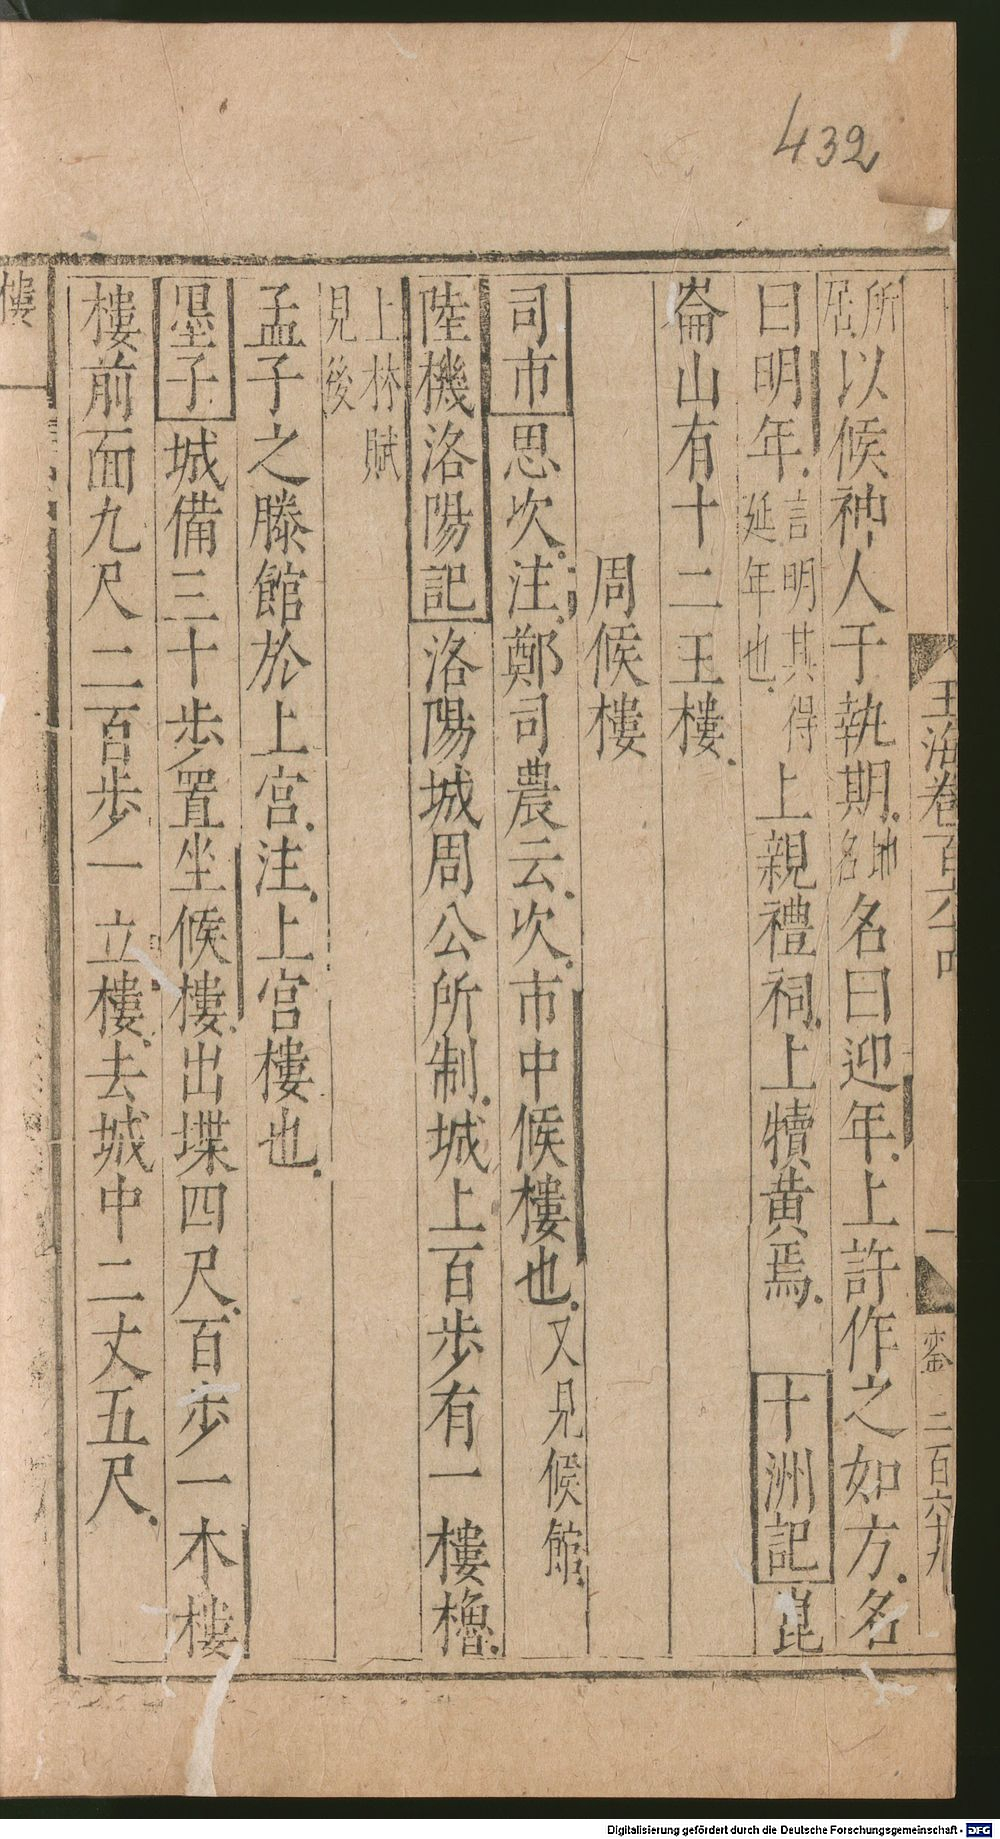 432
玉海卷百六十四 一 二百六十九
所居以候神人于執期地名名曰迎年上許作之如方名
曰明年言明其得延年也上親禮祠上犢黃焉 十洲記 崑
崙山有十二玉樓
周候樓
司市思次注鄭司農云次市中候樓也又見候館
陸機洛陽記洛陽城周公所制城上百步有一樓櫓
上林賦見後
孟子之滕館於上宮注上宮樓也
墨子城備三十步置坐候樓出堞四尺百步一木樓
樓前面九尺二百步一立樓去城中二丈五尺
樓
Digitalisierung gefördert durch die Deutsche Forschungsgemeinschaft - DFG